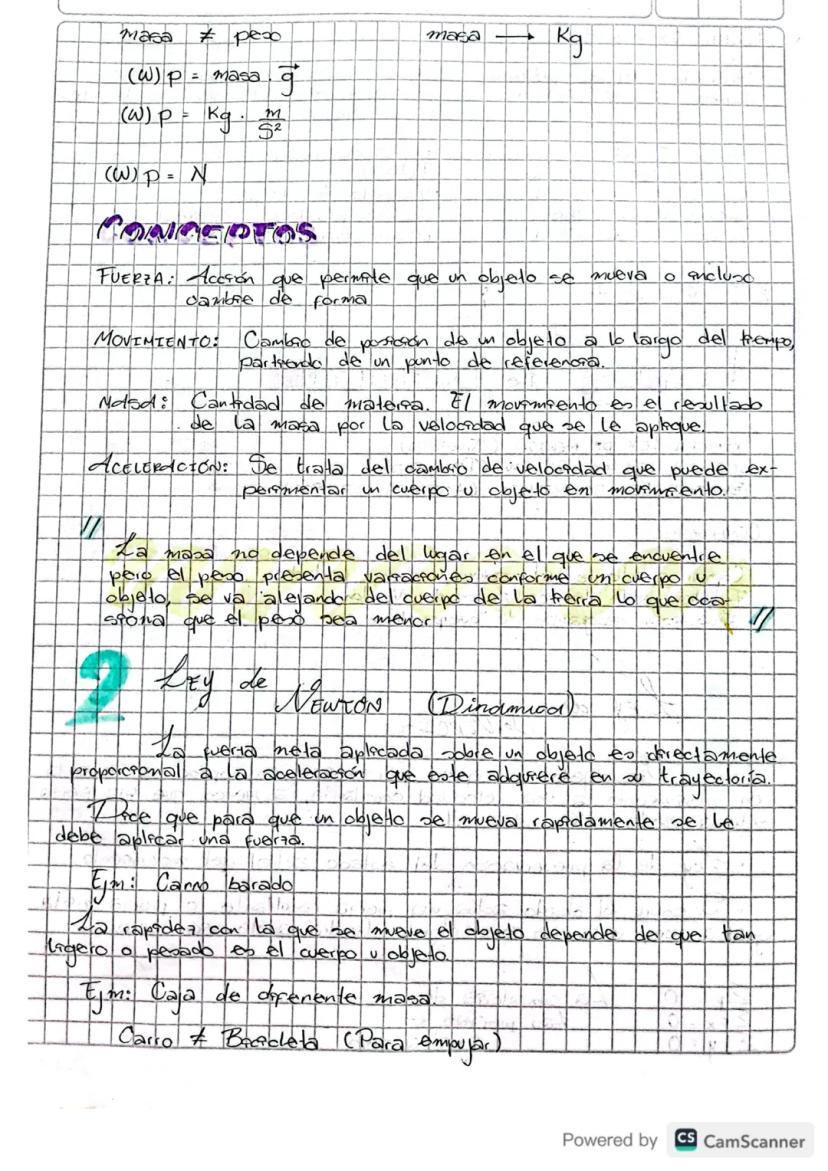 masa ≠ peso masa → Kg
(W) p = masa . g⃗
(W) p = Kg . m/s²
(W) p = N
CONCEPTOS
FUERZA: Acción que permite que un objeto se mueva o incluso
cambie de forma
MOVIMIENTO: Cambio de posición de un objeto a lo largo del tiempo,
partiendo de un punto de referencia.
MASA: Cantidad de materia. El movimiento es el resultado
de la masa por la velocidad que se le aplique.
ACELERACIÓN: Se trata del cambio de velocidad que puede ex-
perimentar un cuerpo u objeto en movimiento.
" La masa no depende del lugar en el que se encuentre
pero el peso presenta variaciones conforme un cuerpo u
objeto, se va alejando del cuerpo de la tierra lo que oca-
siona que el peso sea menor. "
2 Ley de NEWTON (Dinámica)
La fuerza neta aplicada sobre un objeto es directamente
proporcional a la aceleración que este adquiere en su trayectoria.
Dice que para que un objeto se mueva rapidamente se le
debe aplicar una fuerza.
Ejm: Carro barado
La rapidez con la que se mueve el objeto depende de que tan
ligero o pesado es el cuerpo u objeto.
Ejm: Caja de diferente masa.
Carro ≠ Bicicleta (Para empujar)
Powered by CS CamScanner